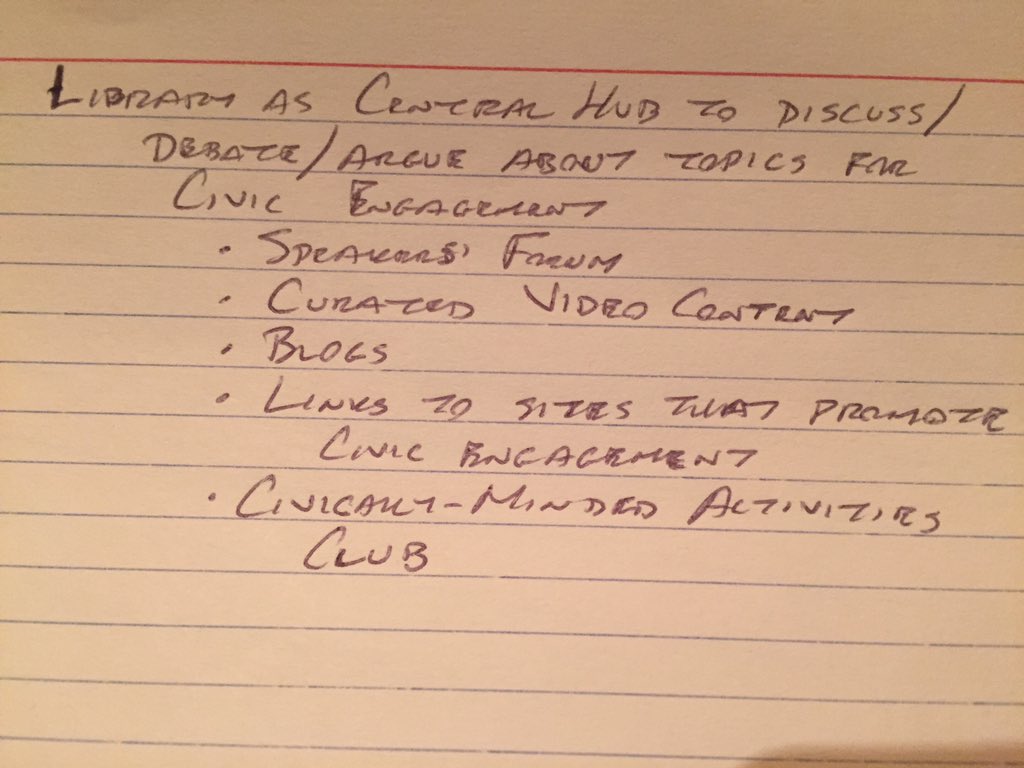 Library as Central Hub to discuss/
Debate/argue about topics for
Civic Engagement
• Speakers' Forum
• Curated Video Content
• Blogs
• Links to sites that promote
Civic engagement
• Civically-Minded Activities
Club